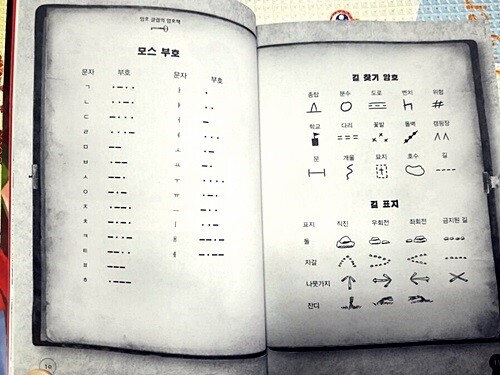 암호 클럽의 암호책
모스 부호
문자 부호 문자 부호
ㄱ ㅏ
ㄴ ㅑ
ㄷ ㅓ
ㄹ ㅕ
ㅁ ㅗ
ㅂ ㅛ
ㅅ ㅜ
ㅇ ㅠ
ㅈ ㅡ
ㅊ ㅣ
ㅋ ㅐ
ㅌ ㅔ
ㅍ
ㅎ
16
길 찾기 암호
종탑 분수 도로 벤치 위험
학교 다리 꽃밭 돌벽 캠핑장
문 개울 묘지 호수 길
길 표지
표지 직진 우회전 좌회전 금지된 길
돌
자갈
나뭇가지
잔디